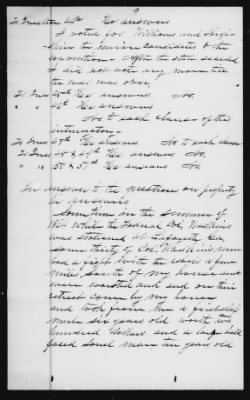 9
To Question 44th He answers
I voted for Williams and
the union candidates to the
convention - After the state seceded
I did not vote any more till
the war was over,
To Inter 45th He answers
" " 46th He answers
No to each clause of this
interrogatory -
To Inter 47th He answers No to each clause
To Inter 48 & 49th He answers No.
" " 50 & 51st He answers No.
In answer to the questions on property
he answers
Sometime in the summer of
186 while the Federal Col, Watkins
was stationed at Lafayette Ga
some thirty of Col, Watkins men
had a fight with the rebels a few
miles South of my house and
were worsted and and on their
retreat came by my house
and took from me a
mule six years old worth two
hundred dollars and a large bald
faced Sorrel mare ten years old